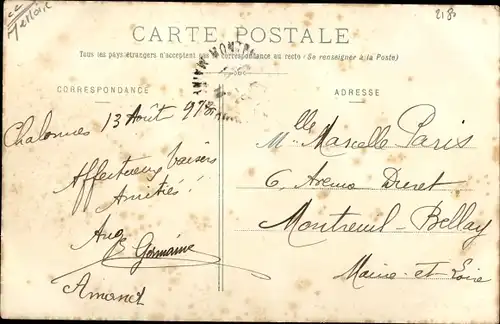 CARTE POSTALE
Tous les pays étrangers n'acceptent pas la correspondance au recto (Se renseigner à la Poste)
CORRESPONDANCE
ADRESSE
Chalonnes 13 Août
Affectueux baisers
Amitiés!
Germaine
Amand
Mlle Marcelle Paris
6, Avenue Duret
Montreuil-Bellay
Maine-et-Loire